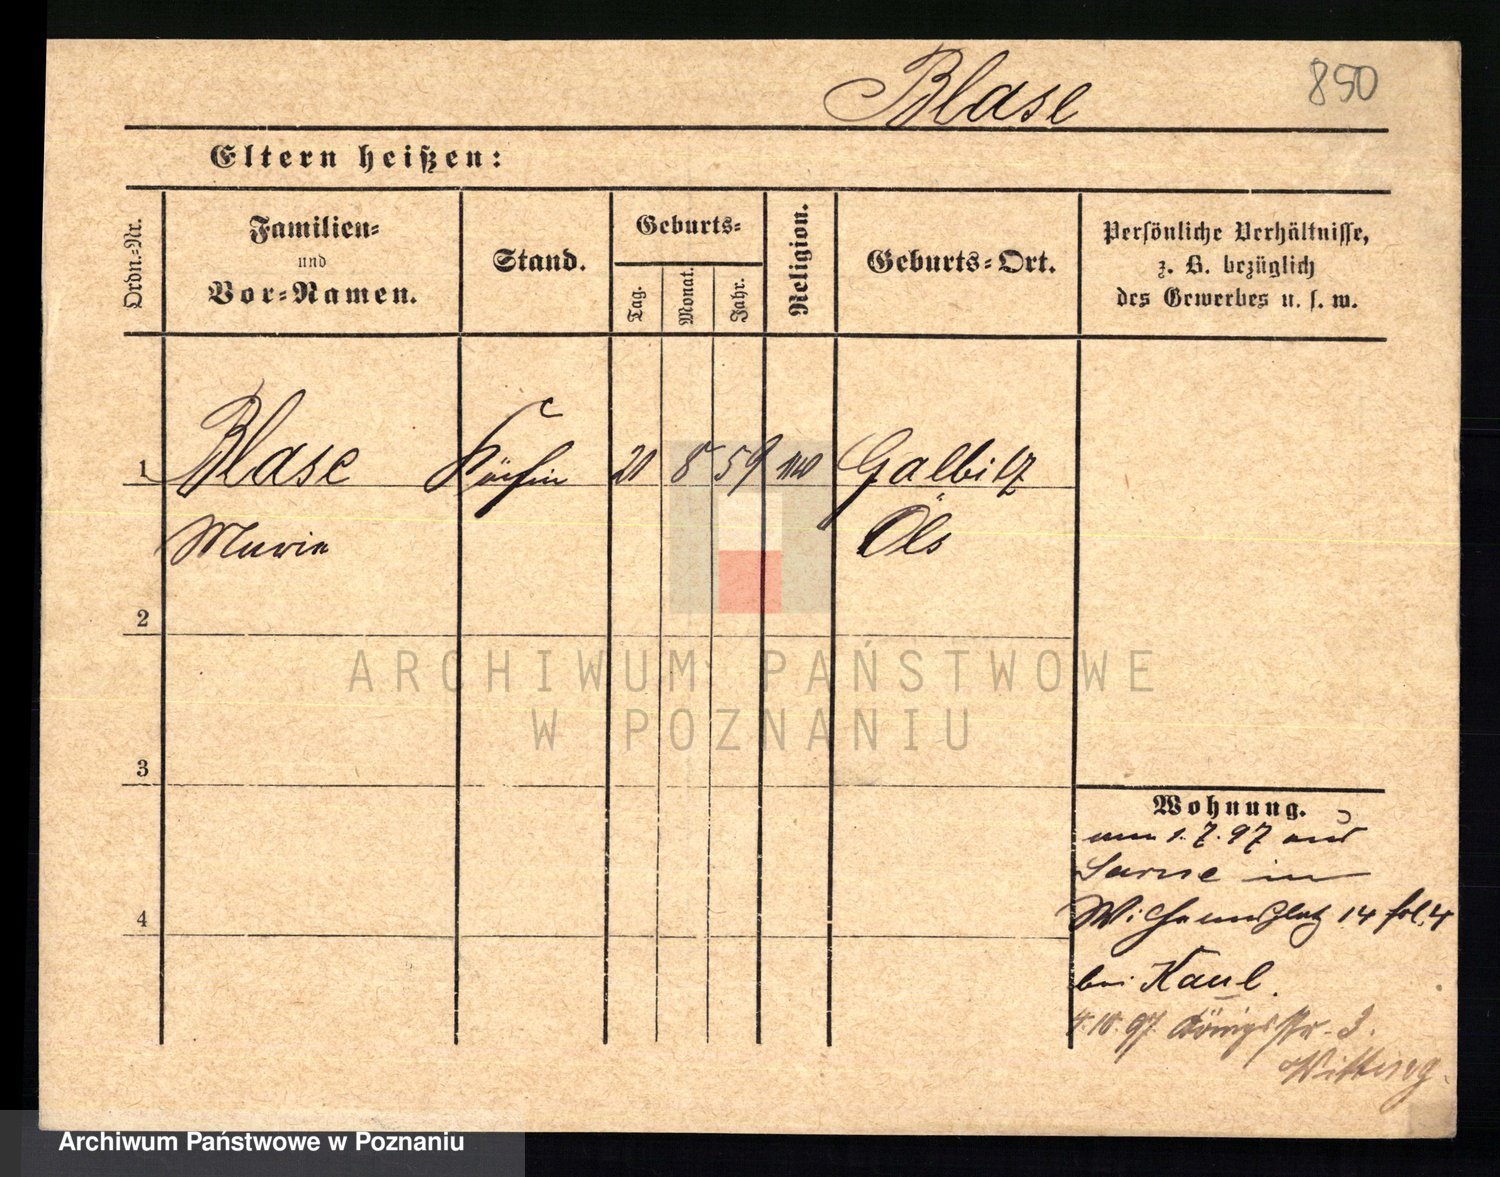 Blase
850
Eltern heißen:
Ordn.-Nr.
Familien-
und
Vor-Namen.
Stand.
Geburts-
Tag.
Monat.
Jahr.
Religion.
Geburts-Ort.
Persönliche Verhältnisse,
z. B. bezüglich
des Gewerbes u. s. w.
1 Blase Köchin 20 8 59 Galbitz
Marie Öls
2
3
4
Wohnung.
am 1.7.97 aus
Sarne in
Wilhelmsplatz 14
bei Kaul.
10.97 Königsstr. 3.
Witting.
ARCHIWUM PAŃSTWOWE
W POZNANIU
Archiwum Państwowe w Poznaniu